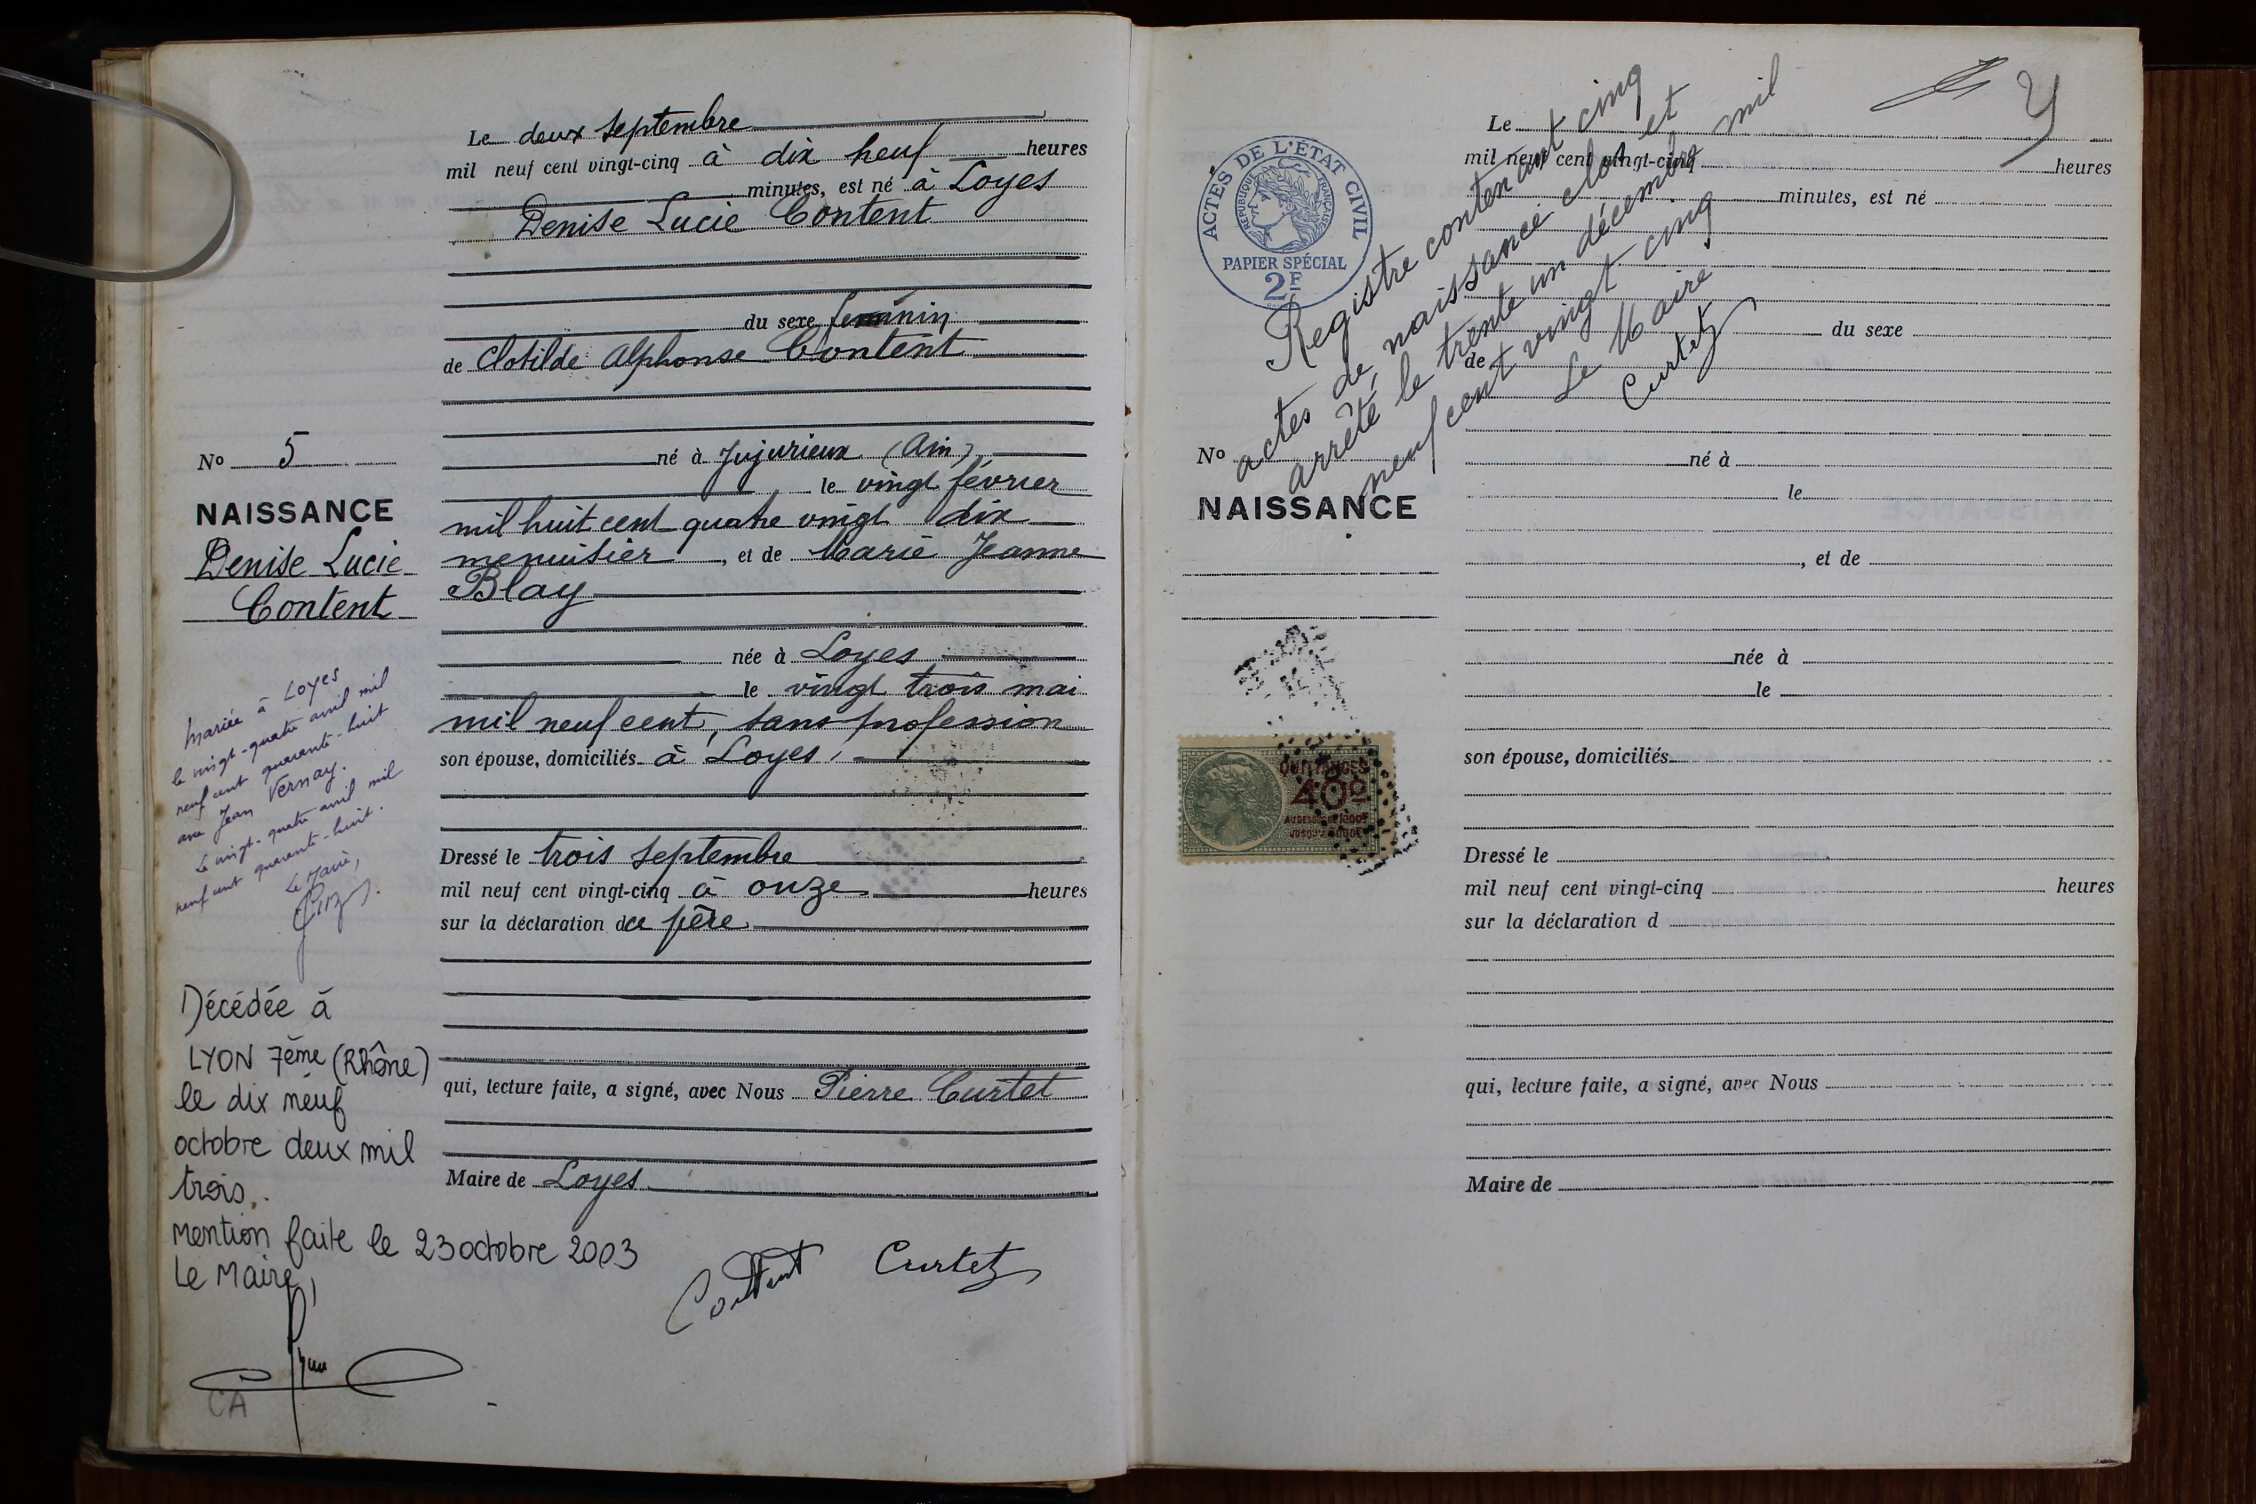 Le deux septembre
mil neuf cent vingt-cinq à dix neuf heures
minutes, est né à Loyes
Denise Lucie Content
du sexe feminin
de Clotilde Alphonse Content
né à Jujurieux (Ain)
le vingt février
mil huit cent quatre vingt dix
menuisier, et de Marie Jeanne
Blay
née à Loyes
le vingt trois mai
mil neuf cent, sans profession
son épouse, domiciliés à Loyes.
Dressé le trois septembre
mil neuf cent vingt-cinq à onze heures
sur la déclaration du père
qui, lecture faite, a signé, avec Nous Pierre Curtet
Maire de Loyes
Content Curtet
No 5
NAISSANCE
Denise Lucie
Content
Mariée à Loyes
le vingt-quatre avril mil
neuf cent quarante-huit
avec Jean Vernay.
Le vingt-quatre avril mil
neuf cent quarante-huit.
Le Maire,
Décédée à
LYON 7ème (Rhône)
le dix neuf
octobre deux mil
trois.
Mention faite le 23 octobre 2003
Le Maire,
CA
ACTES DE L'ÉTAT CIVIL
RÉPUBLIQUE FRANÇAISE
PAPIER SPÉCIAL
2F
Registre contenant cinq
actes de naissance clos et
arrêté le trente un décembre mil
neuf cent vingt cinq
Le Maire
Curtet
No
NAISSANCE
QUITTANCES
48c
Le
mil neuf cent vingt-cinq heures
minutes, est né
du sexe
de
né à
le
, et de
née à
le
son épouse, domiciliés
Dressé le
mil neuf cent vingt-cinq heures
sur la déclaration d
qui, lecture faite, a signé, avec Nous
Maire de